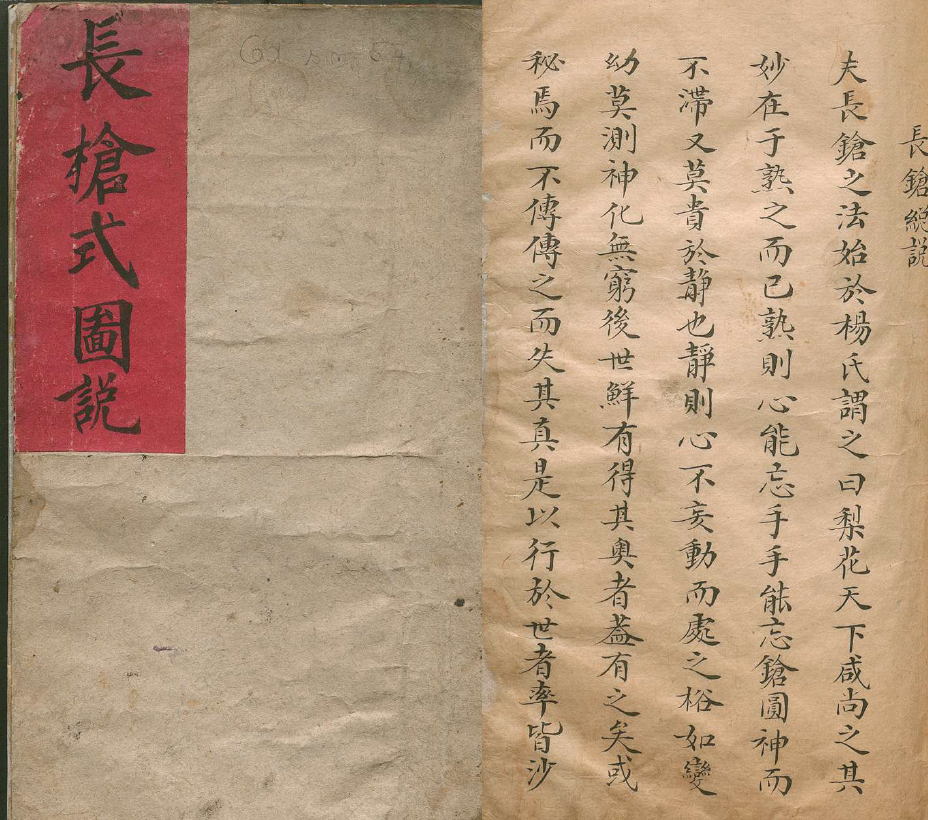 長槍式圖說
長鎗總説
夫長鎗之法始於楊氏謂之曰梨花天下咸尚之其
妙在于熟之而已熟則心能忘手手能忘鎗圓神而
不滯又莫貴於静也靜則心不妄動而處之裕如變
幼莫測神化無窮後世鮮有得其奥者葢有之矣或
秘焉而不傳傳之而失其真是以行於世者率皆沙